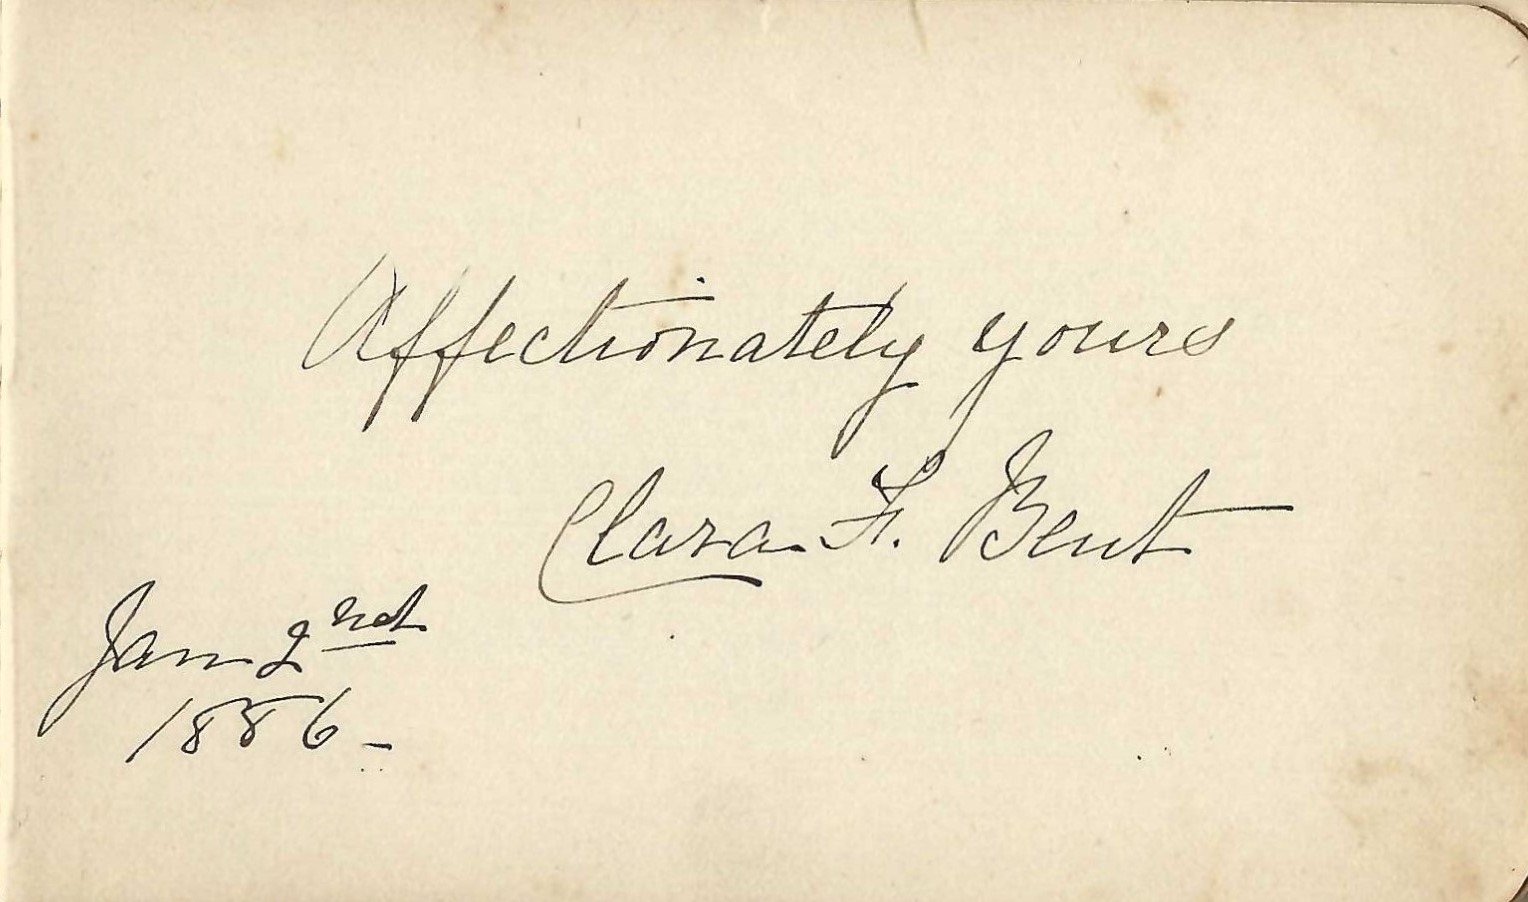 Affectionately yours
Clara F. Bent
Jan 2nd
1886 -